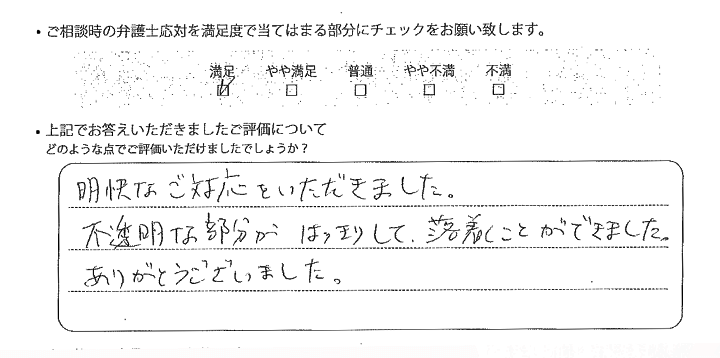 ・ご相談時の弁護士応対を満足度で当てはまる部分にチェックをお願い致します。
満足 やや満足 普通 やや不満 不満
☑ □ □ □ □
・上記でお答えいただきましたご評価について
どのような点でご評価いただけましたでしょうか？
明快なご対応をいただきました。
不透明な部分が はっきりして、落着くことができました。
ありがとうございました。